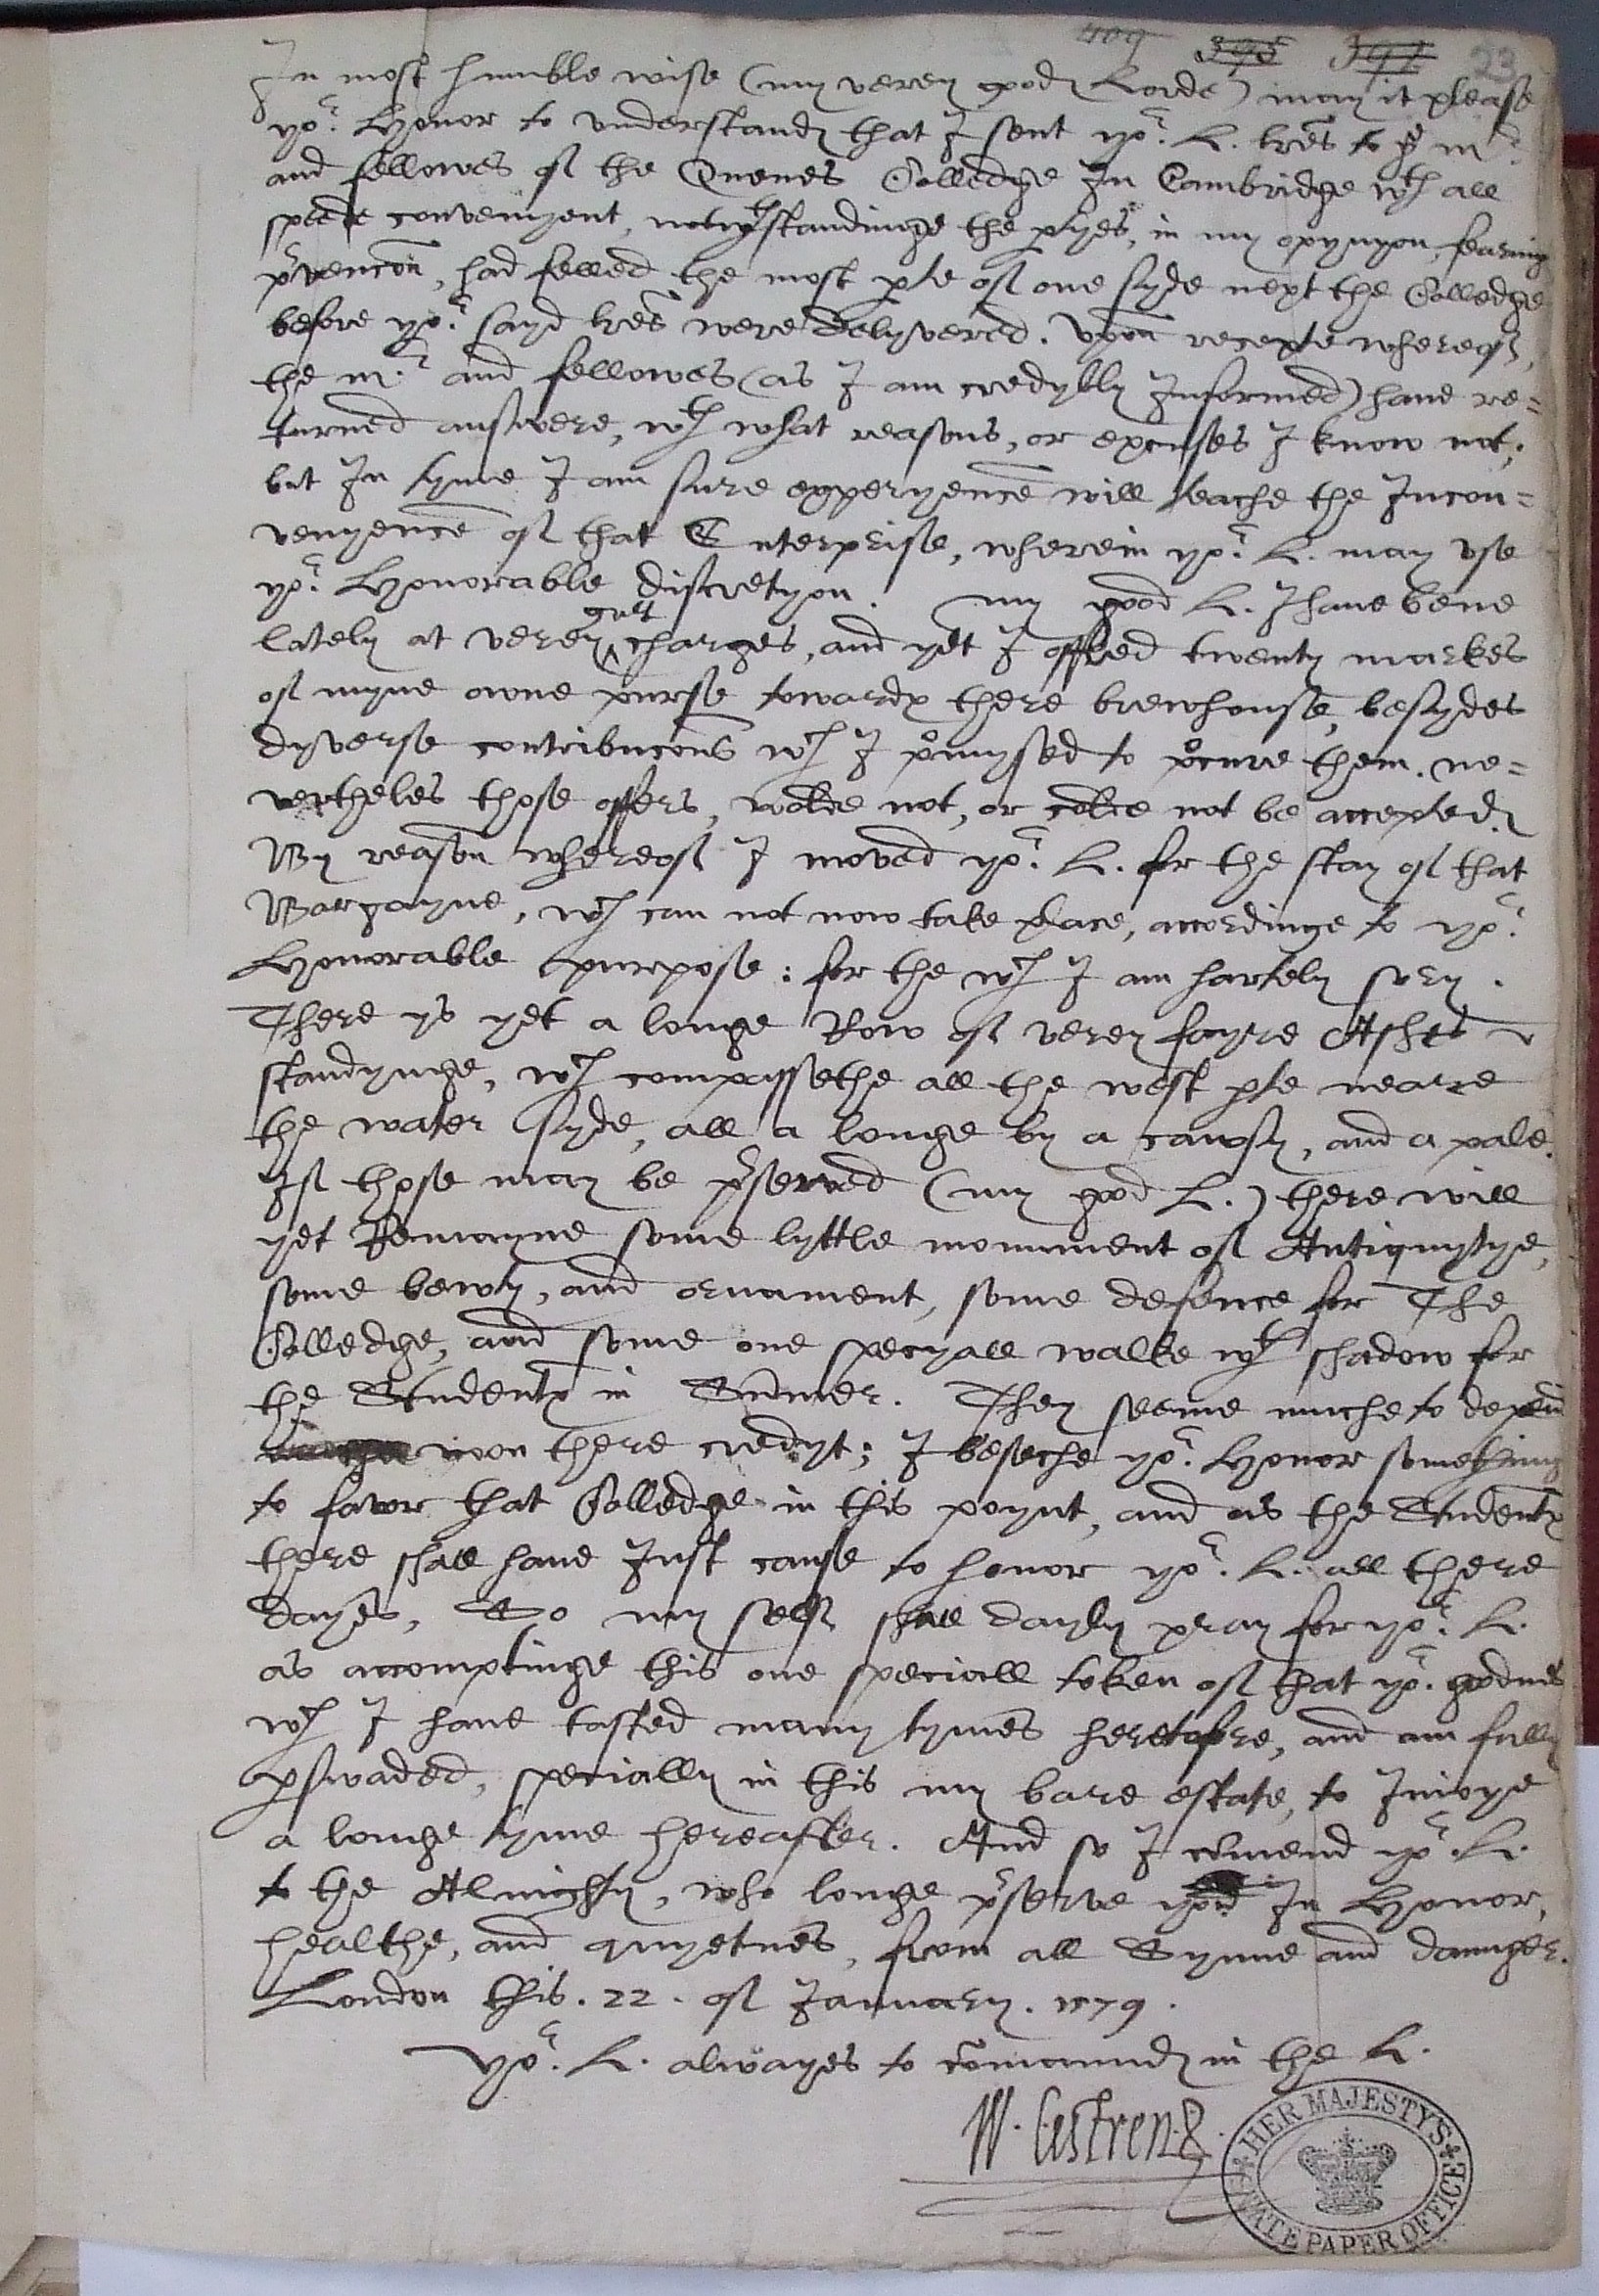 409 395 394 23
In most humble wise (my verey good Lorde) may it please
yor. Honor to understand that I sent yor. L. lres to ye mr.
and fellowes of the Quenes Colledge In Cambridge wth all
spede convenyent, notwthstandinge the ptyes, in my opynyon, fearing
prvencon, had felled the most pte of one syde next the Colledge
before yor. sayd lres were delyvered. Upon recepte whereof,
the mr. and fellowes (as I am credybly Informed) have re=
turned answere, wth what reasons, or excuses I know not;
but In tyme I am sure experyence will teache the Incon=
venyence of that Enterprise, wherein yor. L. may use
yor. Honorable discretyon. my good L. I have bene
lately at verey ^ gret charges, and yet I offred twenty markes
of myne owne purse towardes there brewhouse, besydes
dyverse contribucons wch I promysed to procure them. ne=
vertheles those offers, wolde not, or colde not be accepted.
By reason whereof I moved yor. L. for the stay of that
Bargayne, wch can not now take place, accordinge to yor.
Honorable purpose: for the wch I am hartely sory.
There ys yet a longe Row of verey fayre Ashes
standynge, wch compassethe all the west pte neare
the water syde, all a longe by a cawsy, and a pale.
If those may be prserved (my good L.) there will
yet Remayne some lyttle monument of Antiquytye,
some bewty, and ornament, some defence for The
Colledge, and some one specyall walke wth shadow for
the Students in Sumer. They seeme muche to depend
upon there credyt; I beseche yor. Honor something
to favor that Colledge in this poynt, and as the Students
there shall have Just cause to honor yor. L. all there
dayes, So my self shall dayly pray for yor. L.
as accomptinge this one speciall token of that yor. goodnes
wch I have tasted many tymes heretofore, and am fully
pswaded, specially in this my bare estate, to Injoye
a longe tyme hereafter. And so I comend yor. L.
to the Almighty, who longe prserve you In Honor,
healthe, and quyetnes, from all Synne and daunger.
London this. 22. of January. 1579.
Yor. L. alwayes to comaund in the L.
W. Cestren.
HER MAJESTY'S STATE PAPER OFFICE